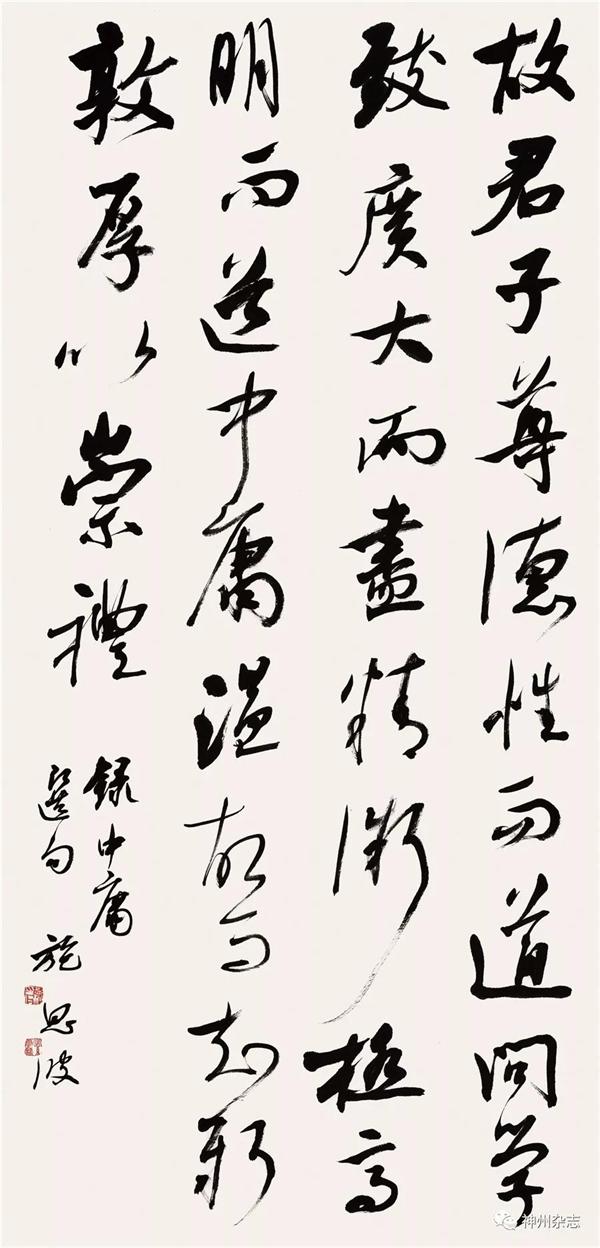 故君子尊德性而道问学
致廣大而盡精微極高
明而道中庸温故而知新
敦厚以崇禮
録中庸
選句 施思波
神州杂志